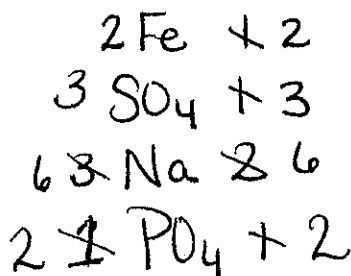 2 Fe + 2
3 SO4 + 3
6 3 Na 2 6
2 1 PO4 + 2